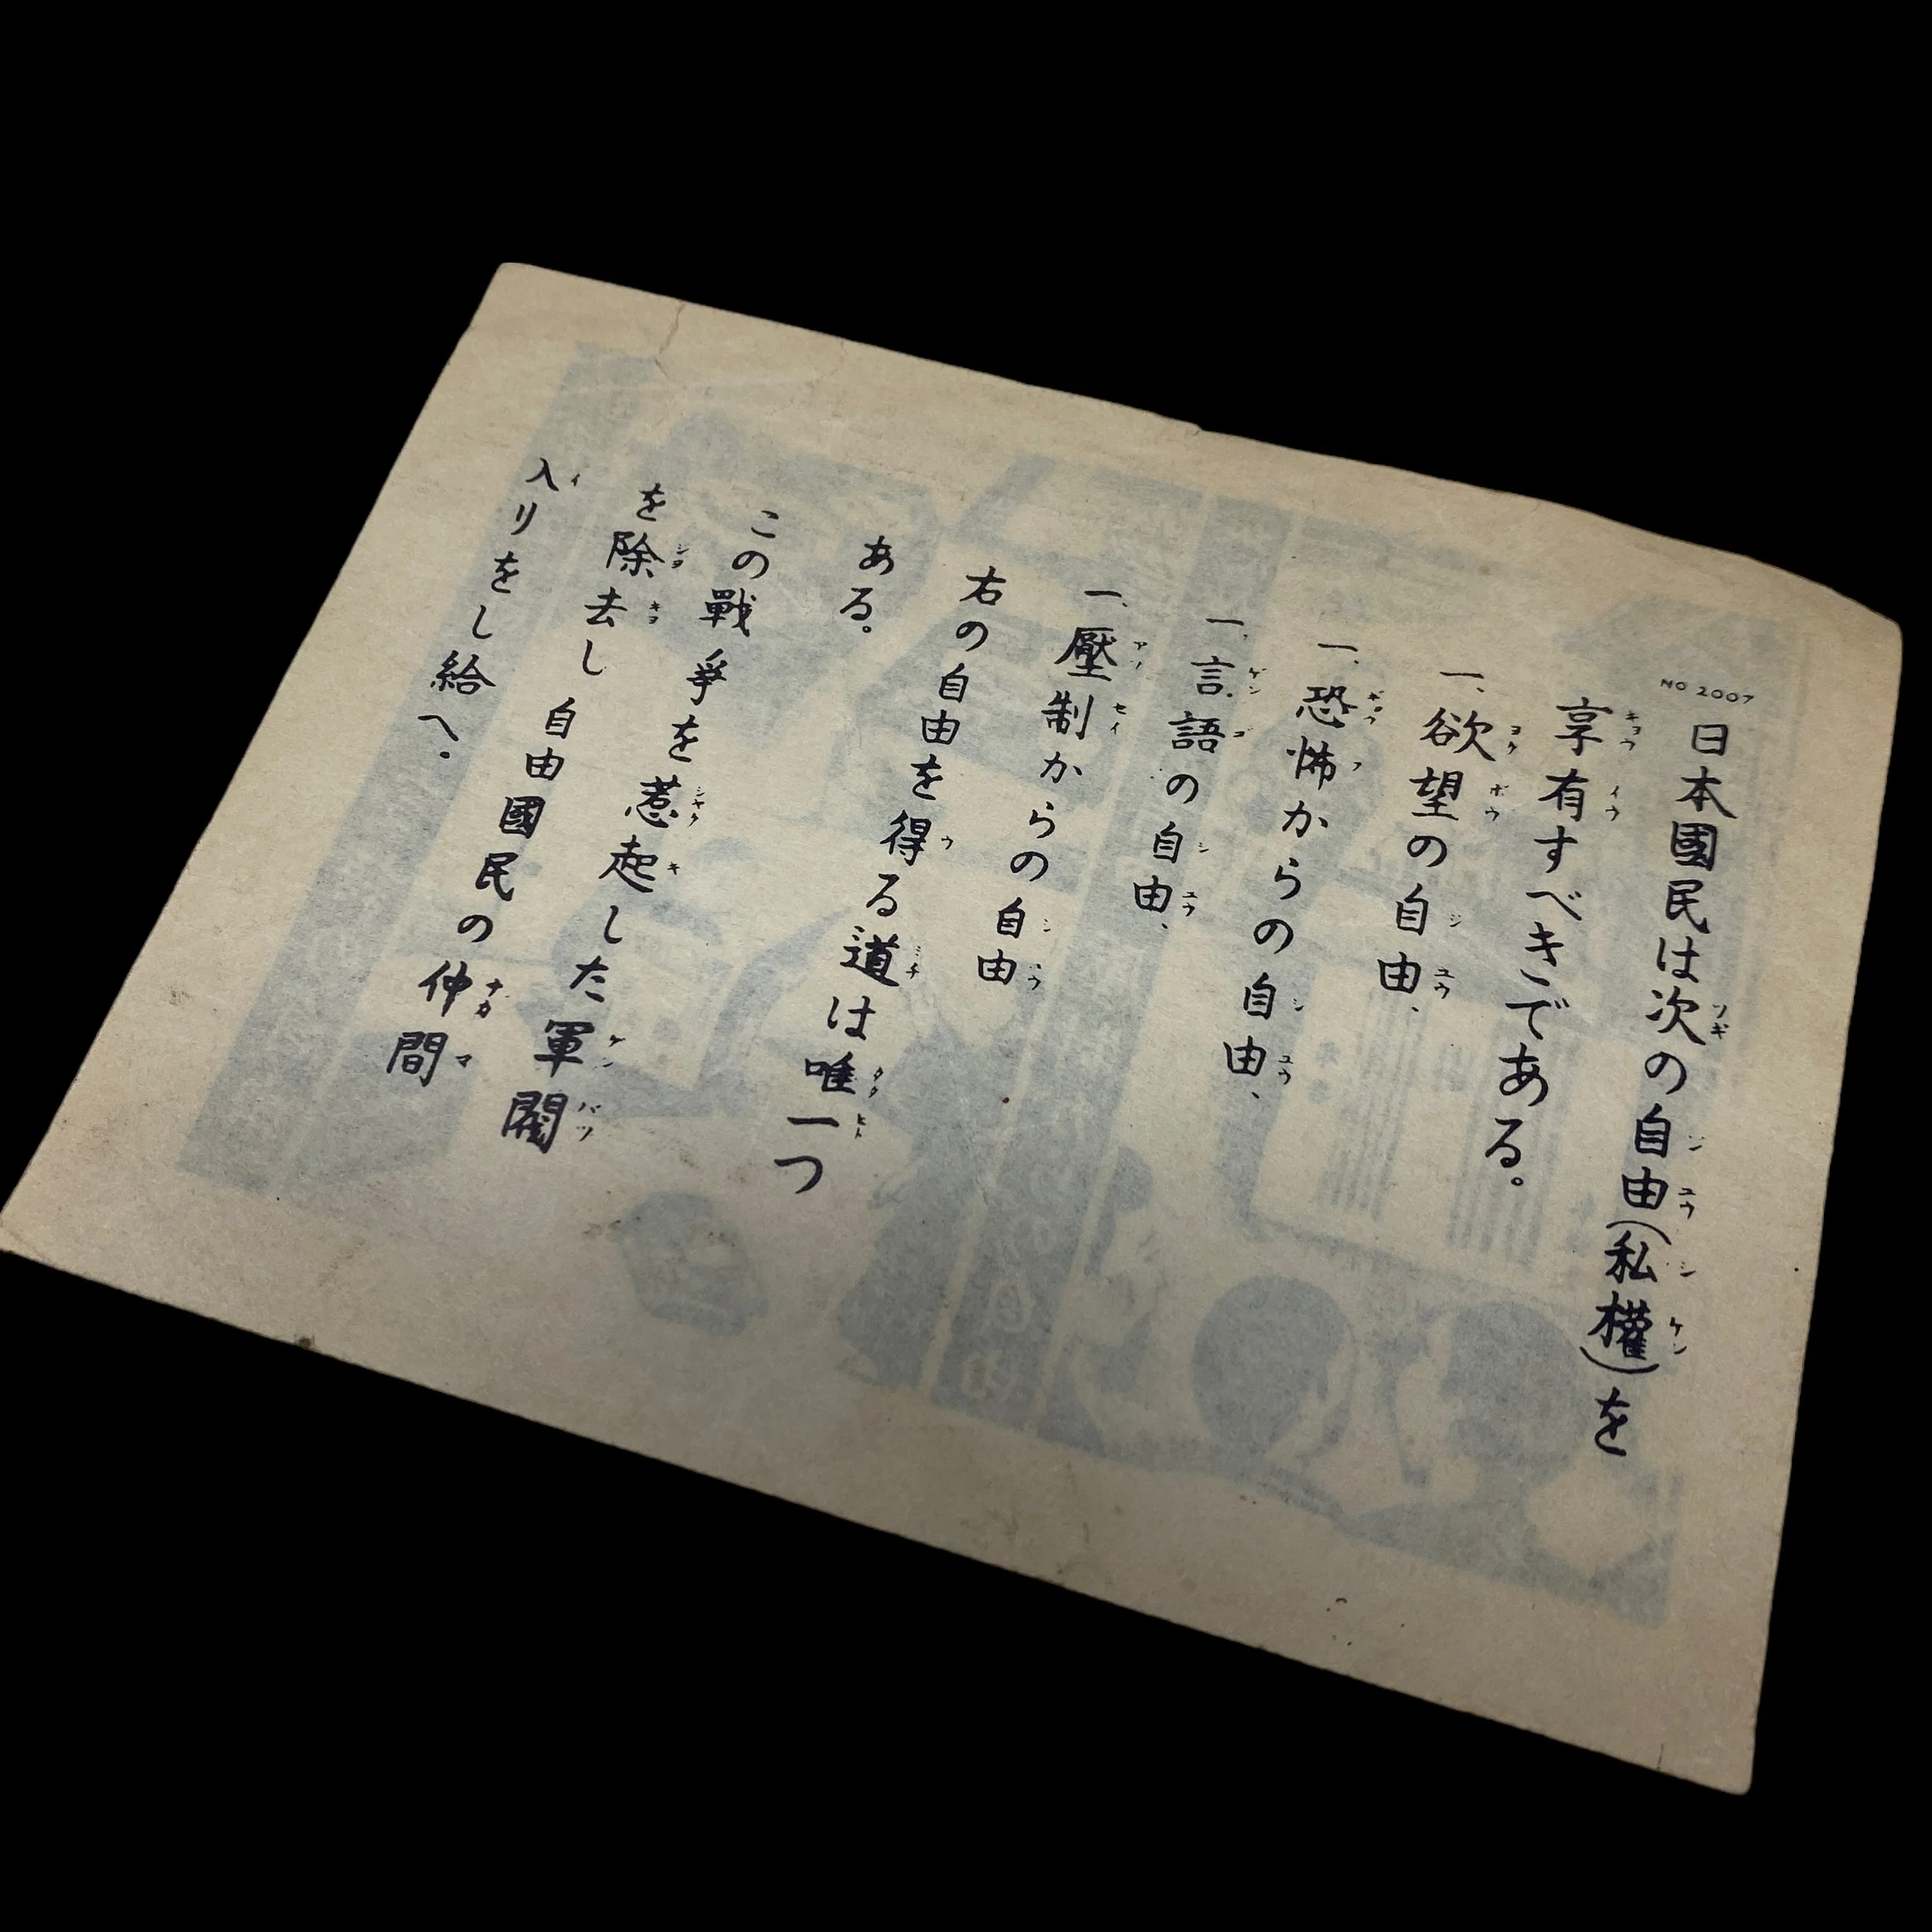 NO 2007
日本國民は次の自由(私權)を
享有すべきである。
一、欲望の自由、
一、恐怖からの自由、
一、言語の自由、
一、壓制からの自由
右の自由を得る道は唯一つ
ある。
この戰爭を惹起した軍閥
を除去し自由國民の仲間
入リをし給へ。